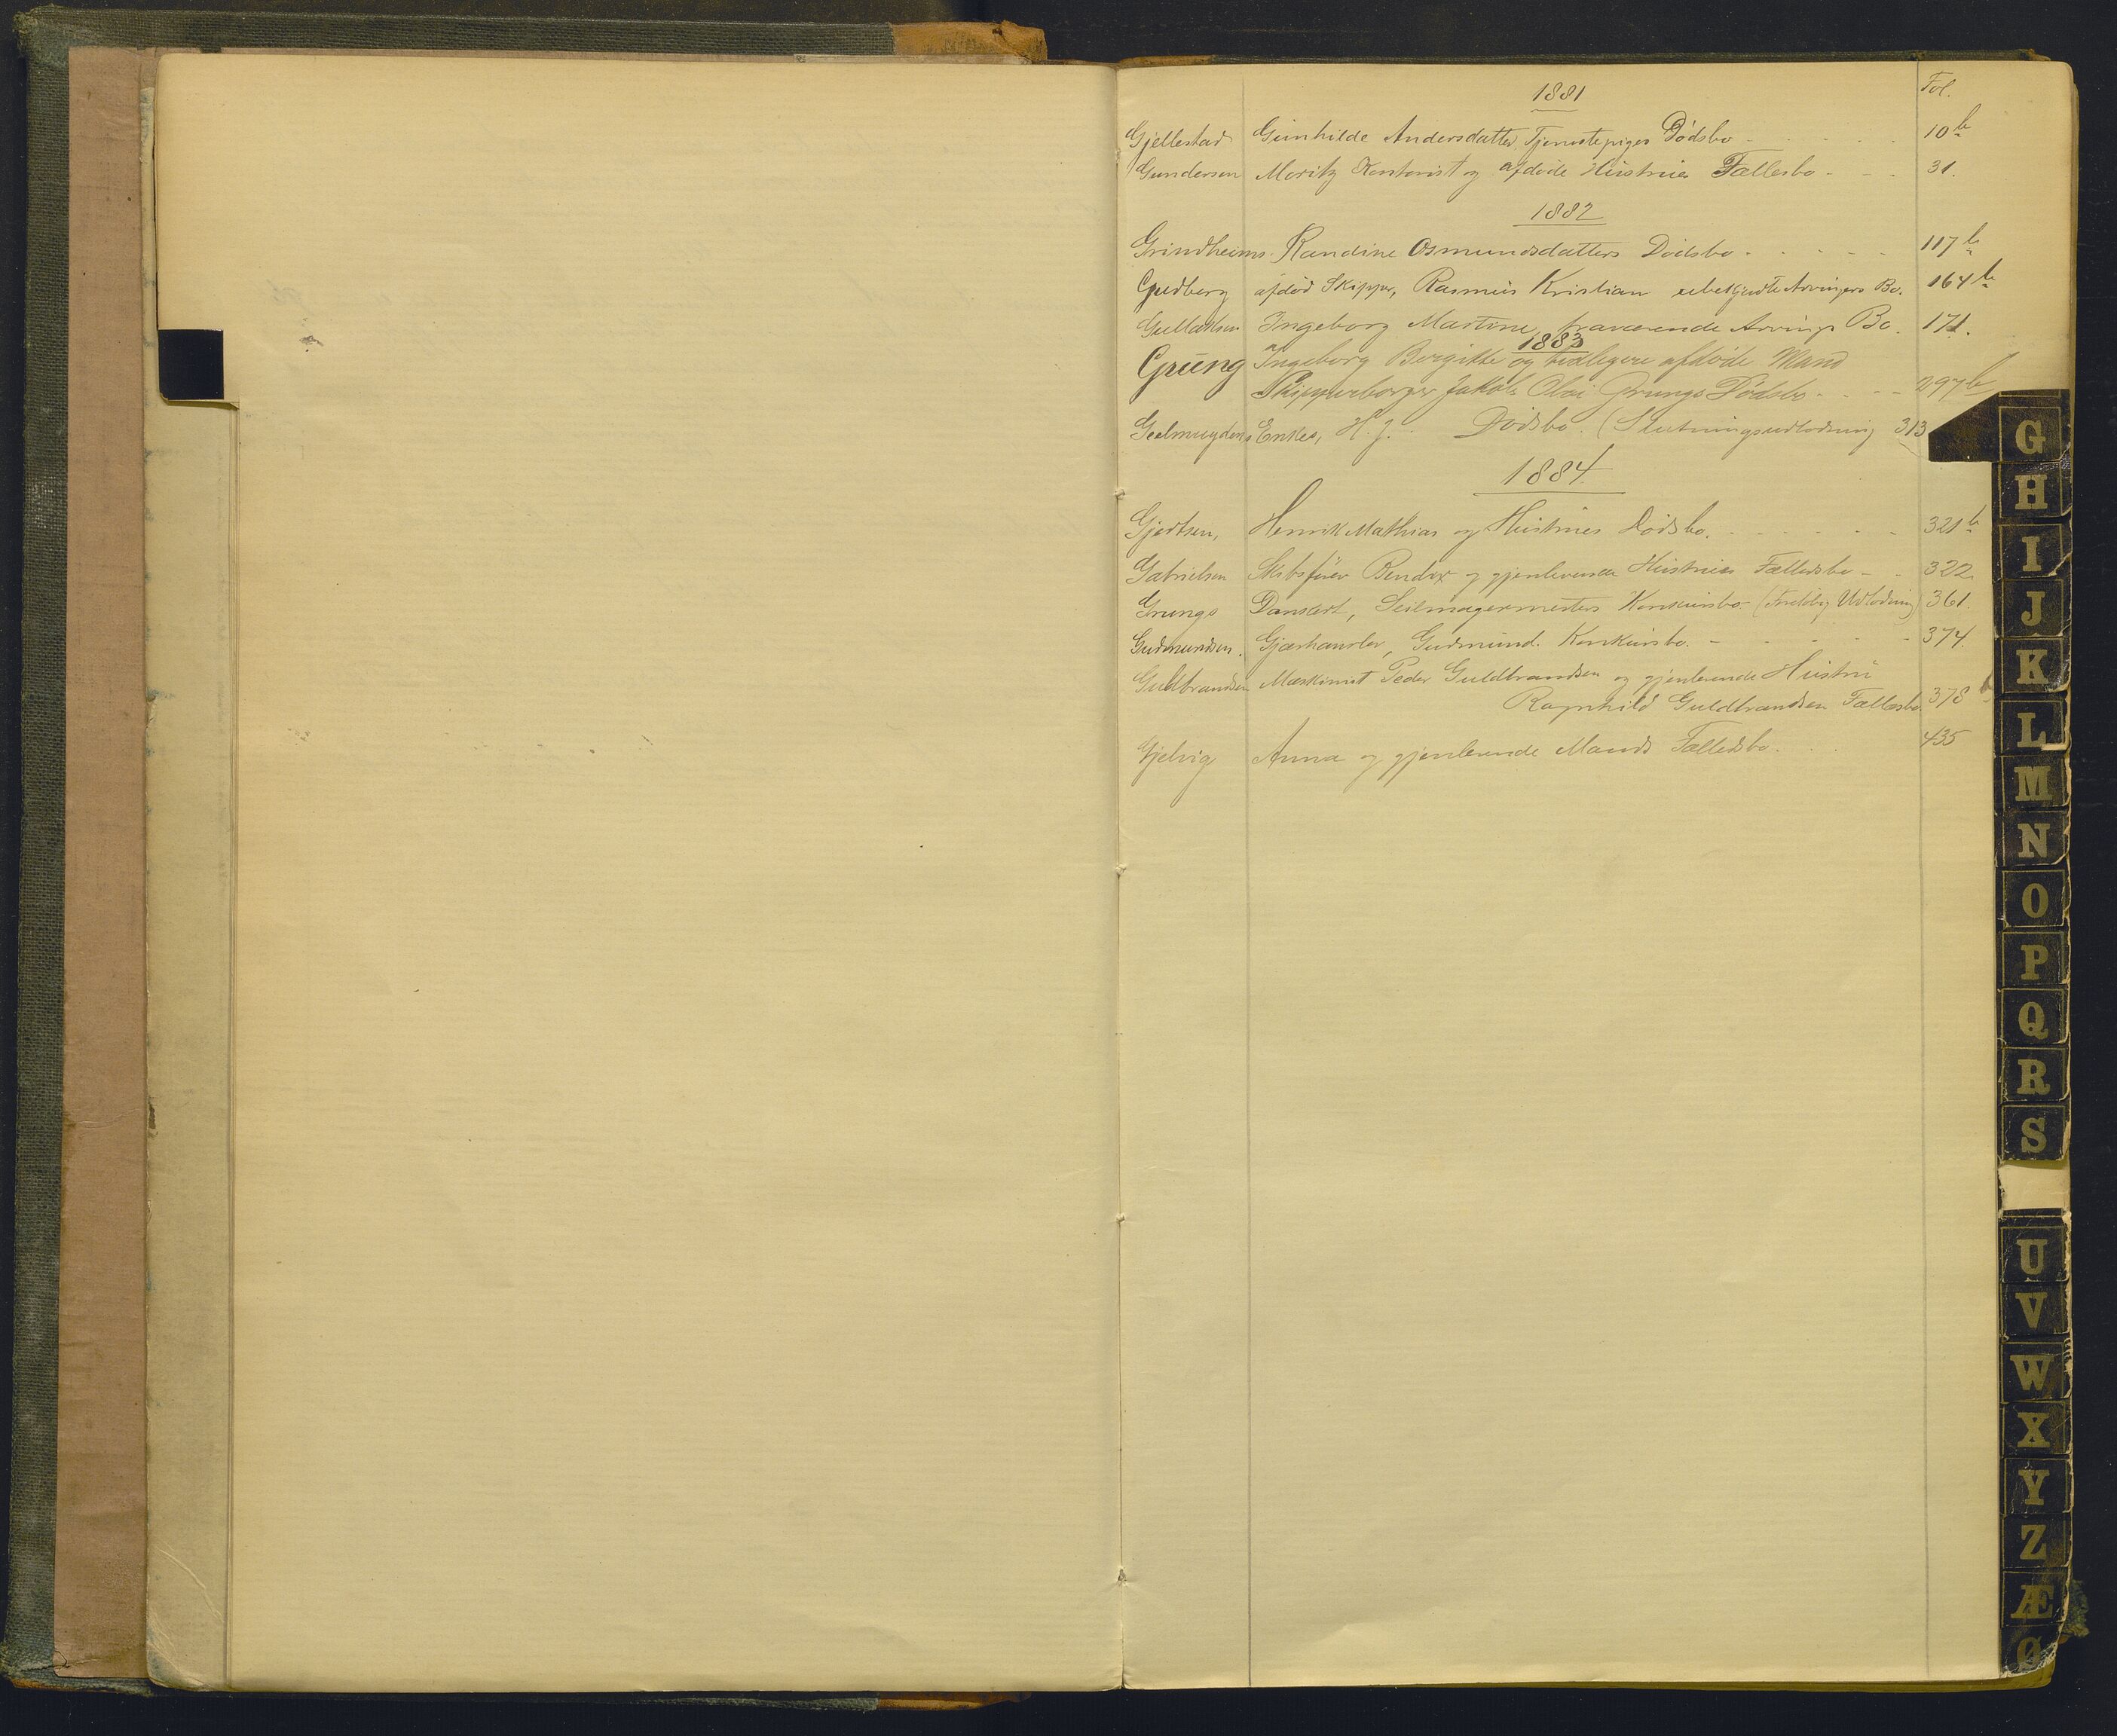 1881
Fol.
Gjellestad Gunhilde Andersdatter, Tjenestepiges Dødsbo 10 b
Gundersen Moritz Kontorist og afdøde Hustrues Fællesbo 31.
1882
Grindheims Randine Osmundsdatters Dødsbo 117 b
Gudberg afdød Skipper, Rasmus Kristian ubekjendte Arvingers Bo. 164 b
Gullaksen Ingeborg Martine, fraværende Arvings Bo. 171.
1883
Grung Ingeborg Birgitte og tidligere afdøde Mand
Skipperborger Jakob Olai Grungs Dødsbo 297 b
Geelmuydens Enkes, H. J. Dødsbo. (Slutningsudlodning 313
1884
Gjertsen, Henrik Mathias og Hustrues Dødsbo. 321 b
Gabrielsen Skibsfører Bendix og gjenlevende Hustrues Fællesbo 322.
Grungs Dankert, Seilmagermesters Konkursbo (Foreløbig Udlodning) 361.
Gudmundsen. Gjærhandler, Gudmund. Konkursbo. 374.
Guldbrandsen Maskinist Peder Guldbrandsen og gjenlevende Hustru
Ragnhild Guldbrandsen Fællesbo. 378 b
Gjelvig Anna og gjenlevende Mands Fælledsbo. 435
G
H
I
J
K
L
M
N
O
P
Q
R
S
U
V
W
X
Y
Z
Æ
Ø